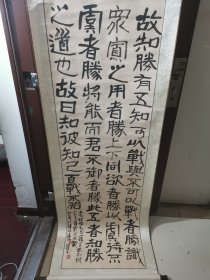 故知勝有五知可以戰與不可以戰者勝識
眾寡之用者勝上下同欲者勝以虞待不
虞者勝將能而君不御者勝此五者知勝
之道也故曰知彼知己百戰不殆